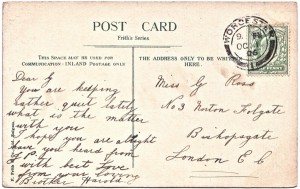 POST CARD
Frith's Series
THIS SPACE MAY BE USED FOR
COMMUNICATION—INLAND POSTAGE ONLY
THE ADDRESS ONLY TO BE WRITTEN
WORCESTER
Dear G
You are keeping
rather quiet lately
what is the matter
with you
I hope you are alright
have you heard from
with best Love
from your loving
Brother Harold
Miss G Ross
No 3 Norton Folgate
Bishopsgate
London E C